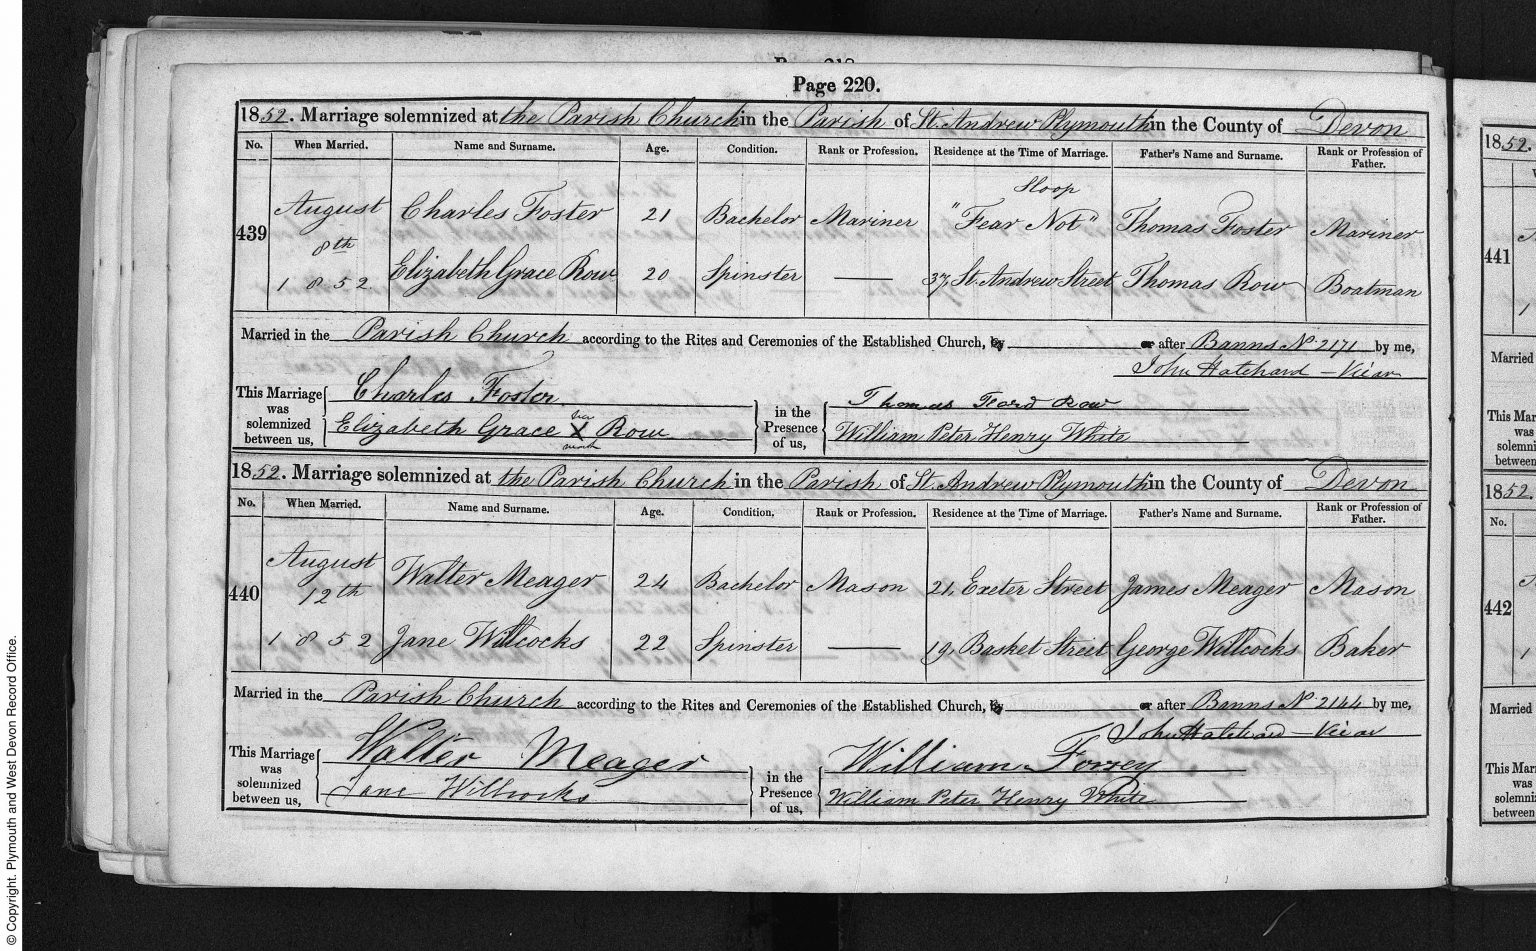 Page 220.
1852. Marriage solemnized at the Parish Church in the Parish of St. Andrew Plymouth in the County of Devon
No. When Married. Name and Surname. Age. Condition. Rank or Profession. Residence at the Time of Marriage. Father's Name and Surname. Rank or Profession of Father.
Sloop
439 August 8th 1852 Charles Foster 21 Bachelor Mariner "Fear Not" Thomas Foster Mariner
Elizabeth Grace Row 20 Spinster 37, St. Andrew Street Thomas Row Boatman
Married in the Parish Church according to the Rites and Ceremonies of the Established Church, by or after Banns No 2171 by me,
John Hatchard – Vicar
This Marriage was solemnized between us, Charles Foster
Elizabeth Grace X Row
her
mark
in the Presence of us, Thomas Row
William Peter Henry White
1852. Marriage solemnized at the Parish Church in the Parish of St. Andrew Plymouth in the County of Devon
No. When Married. Name and Surname. Age. Condition. Rank or Profession. Residence at the Time of Marriage. Father's Name and Surname. Rank or Profession of Father.
440 August 12th 1852 Walter Meager 24 Bachelor Mason 21, Exeter Street James Meager Mason
Jane Willcocks 22 Spinster 19, Basket Street George Willcocks Baker
Married in the Parish Church according to the Rites and Ceremonies of the Established Church, by or after Banns No 2144 by me,
John Hatchard – Vicar
This Marriage was solemnized between us, Walter Meager
Jane Willcocks
in the Presence of us, William Forrey
William Peter Henry White
1852.
441
Married
This Mar
was
solemni
between
1852.
No.
442
Married
This Mar
was
solemni
between
© Copyright. Plymouth and West Devon Record Office.